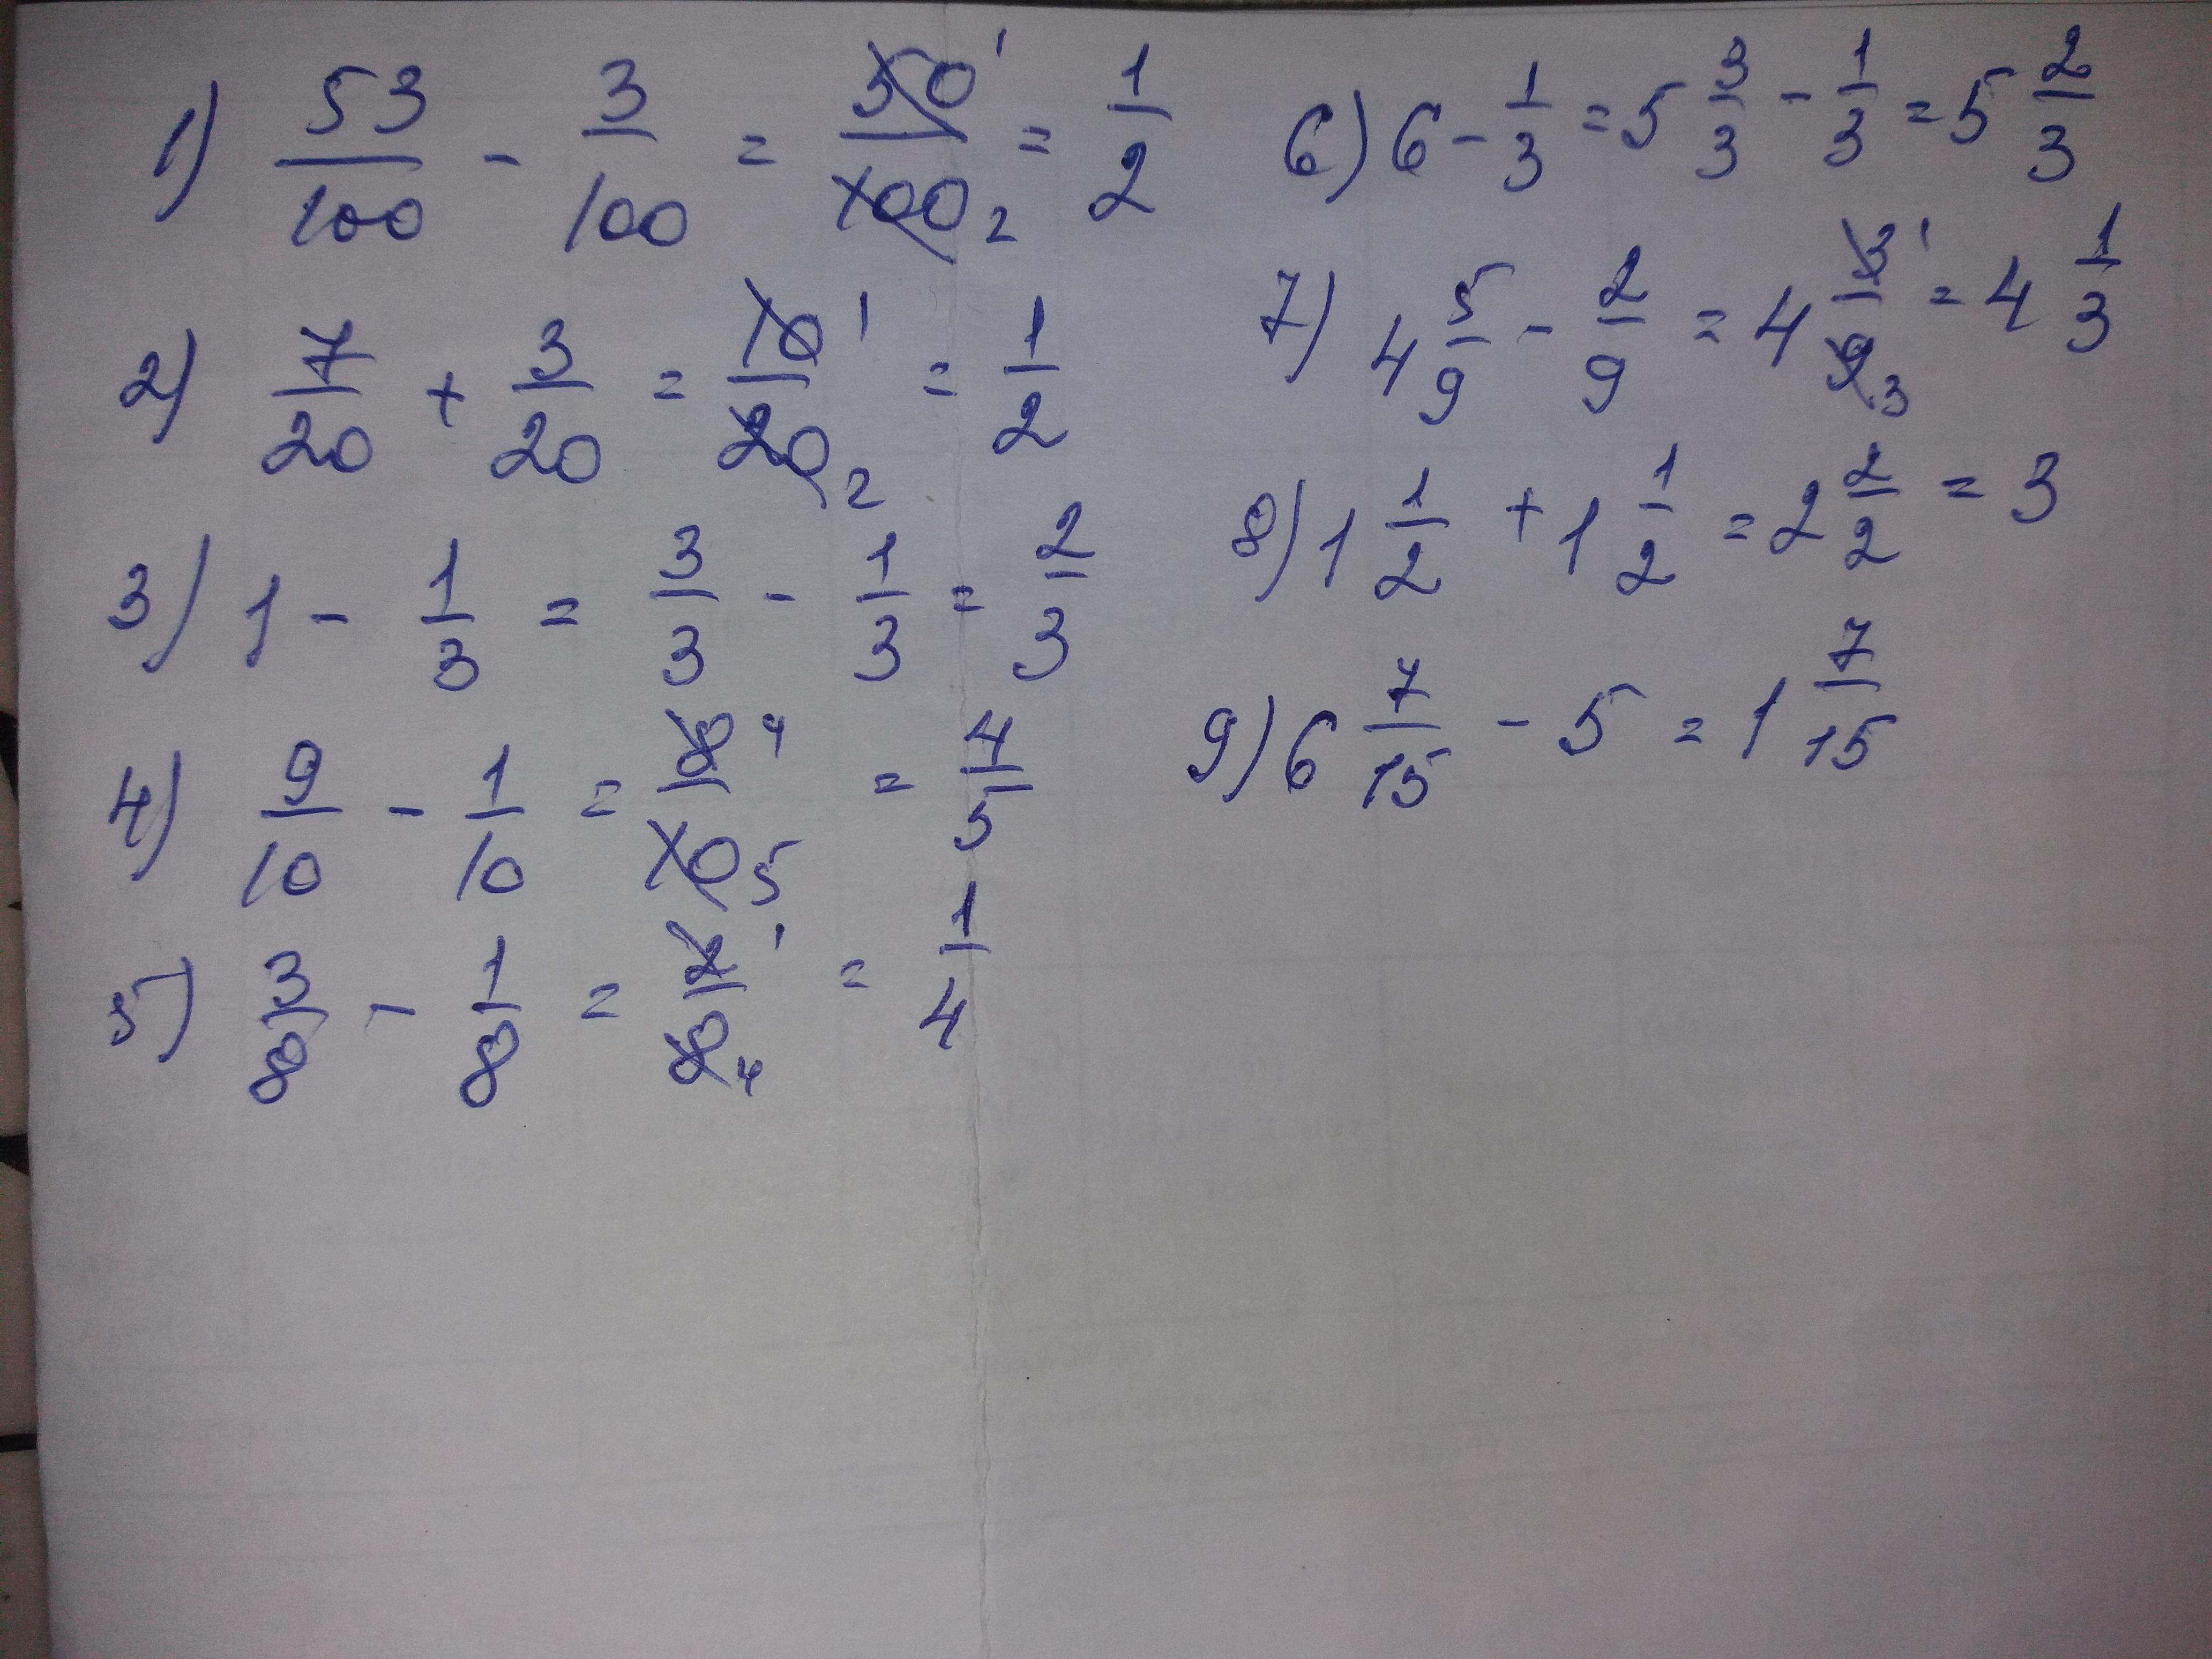 1) 53/100 - 3/100 = 50/100 1 2 = 1/2
2) 7/20 + 3/20 = 10/20 1 2 = 1/2
3) 1 - 1/3 = 3/3 - 1/3 = 2/3
4) 9/10 - 1/10 = 8/10 4 5 = 4/5
5) 3/8 - 1/8 = 2/8 1 4 = 1/4
6) 6 - 1/3 = 5 3/3 - 1/3 = 5 2/3
7) 4 5/9 - 2/9 = 4 3/9 1 3 = 4 1/3
8) 1 1/2 + 1 1/2 = 2 2/2 = 3
9) 6 7/15 - 5 = 1 7/15